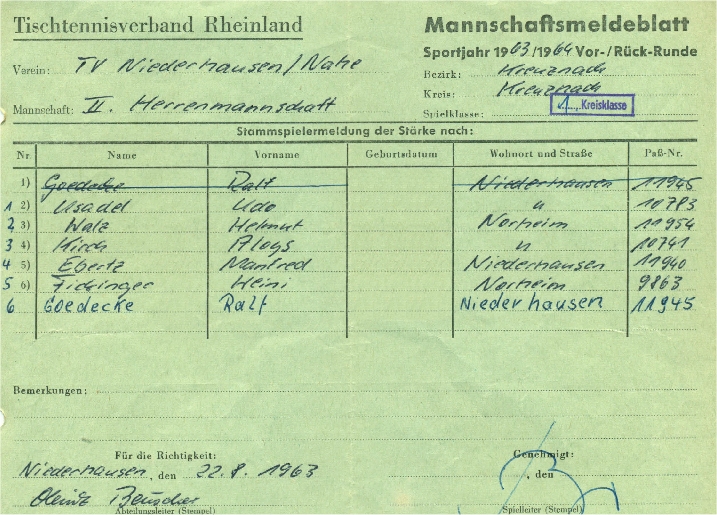 Tischtennisverband Rheinland
Mannschaftsmeldeblatt
Sportjahr 1963/1964 Vor-/Rück-Runde
Verein: TV Niederhausen/Nahe
Bezirk: Kreuznach
Kreis: Kreuznach
Mannschaft: II. Herrenmannschaft
Spielklasse: 1. Kreisklasse
Stammspielermeldung der Stärke nach:
Nr. Name Vorname Geburtsdatum Wohnort und Straße Paß-Nr.
1) Goedecke Ralf Niederhausen 11945
1 2) Usadel Udo " 10783
2 3) Walz Helmut Norheim 11954
3 4) Kirch Aloys " 10741
4 5) Ebertz Manfred Niederhausen 11940
5 6) Heini Norheim 9863
6 Goedecke Ralf Niederhausen 11945
Bemerkungen:
Für die Richtigkeit: Genehmigt:
Niederhausen, den 22.8. 1963 , den
Abteilungsleiter (Stempel) Spielleiter (Stempel)